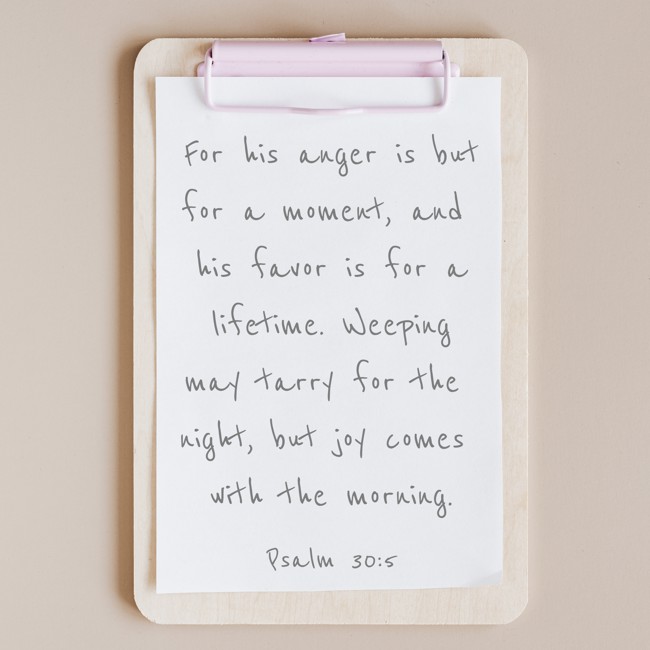 For his anger is but
for a moment, and
his favor is for a
lifetime. Weeping
may tarry for the
night, but joy comes
with the morning.
Psalm 30:5